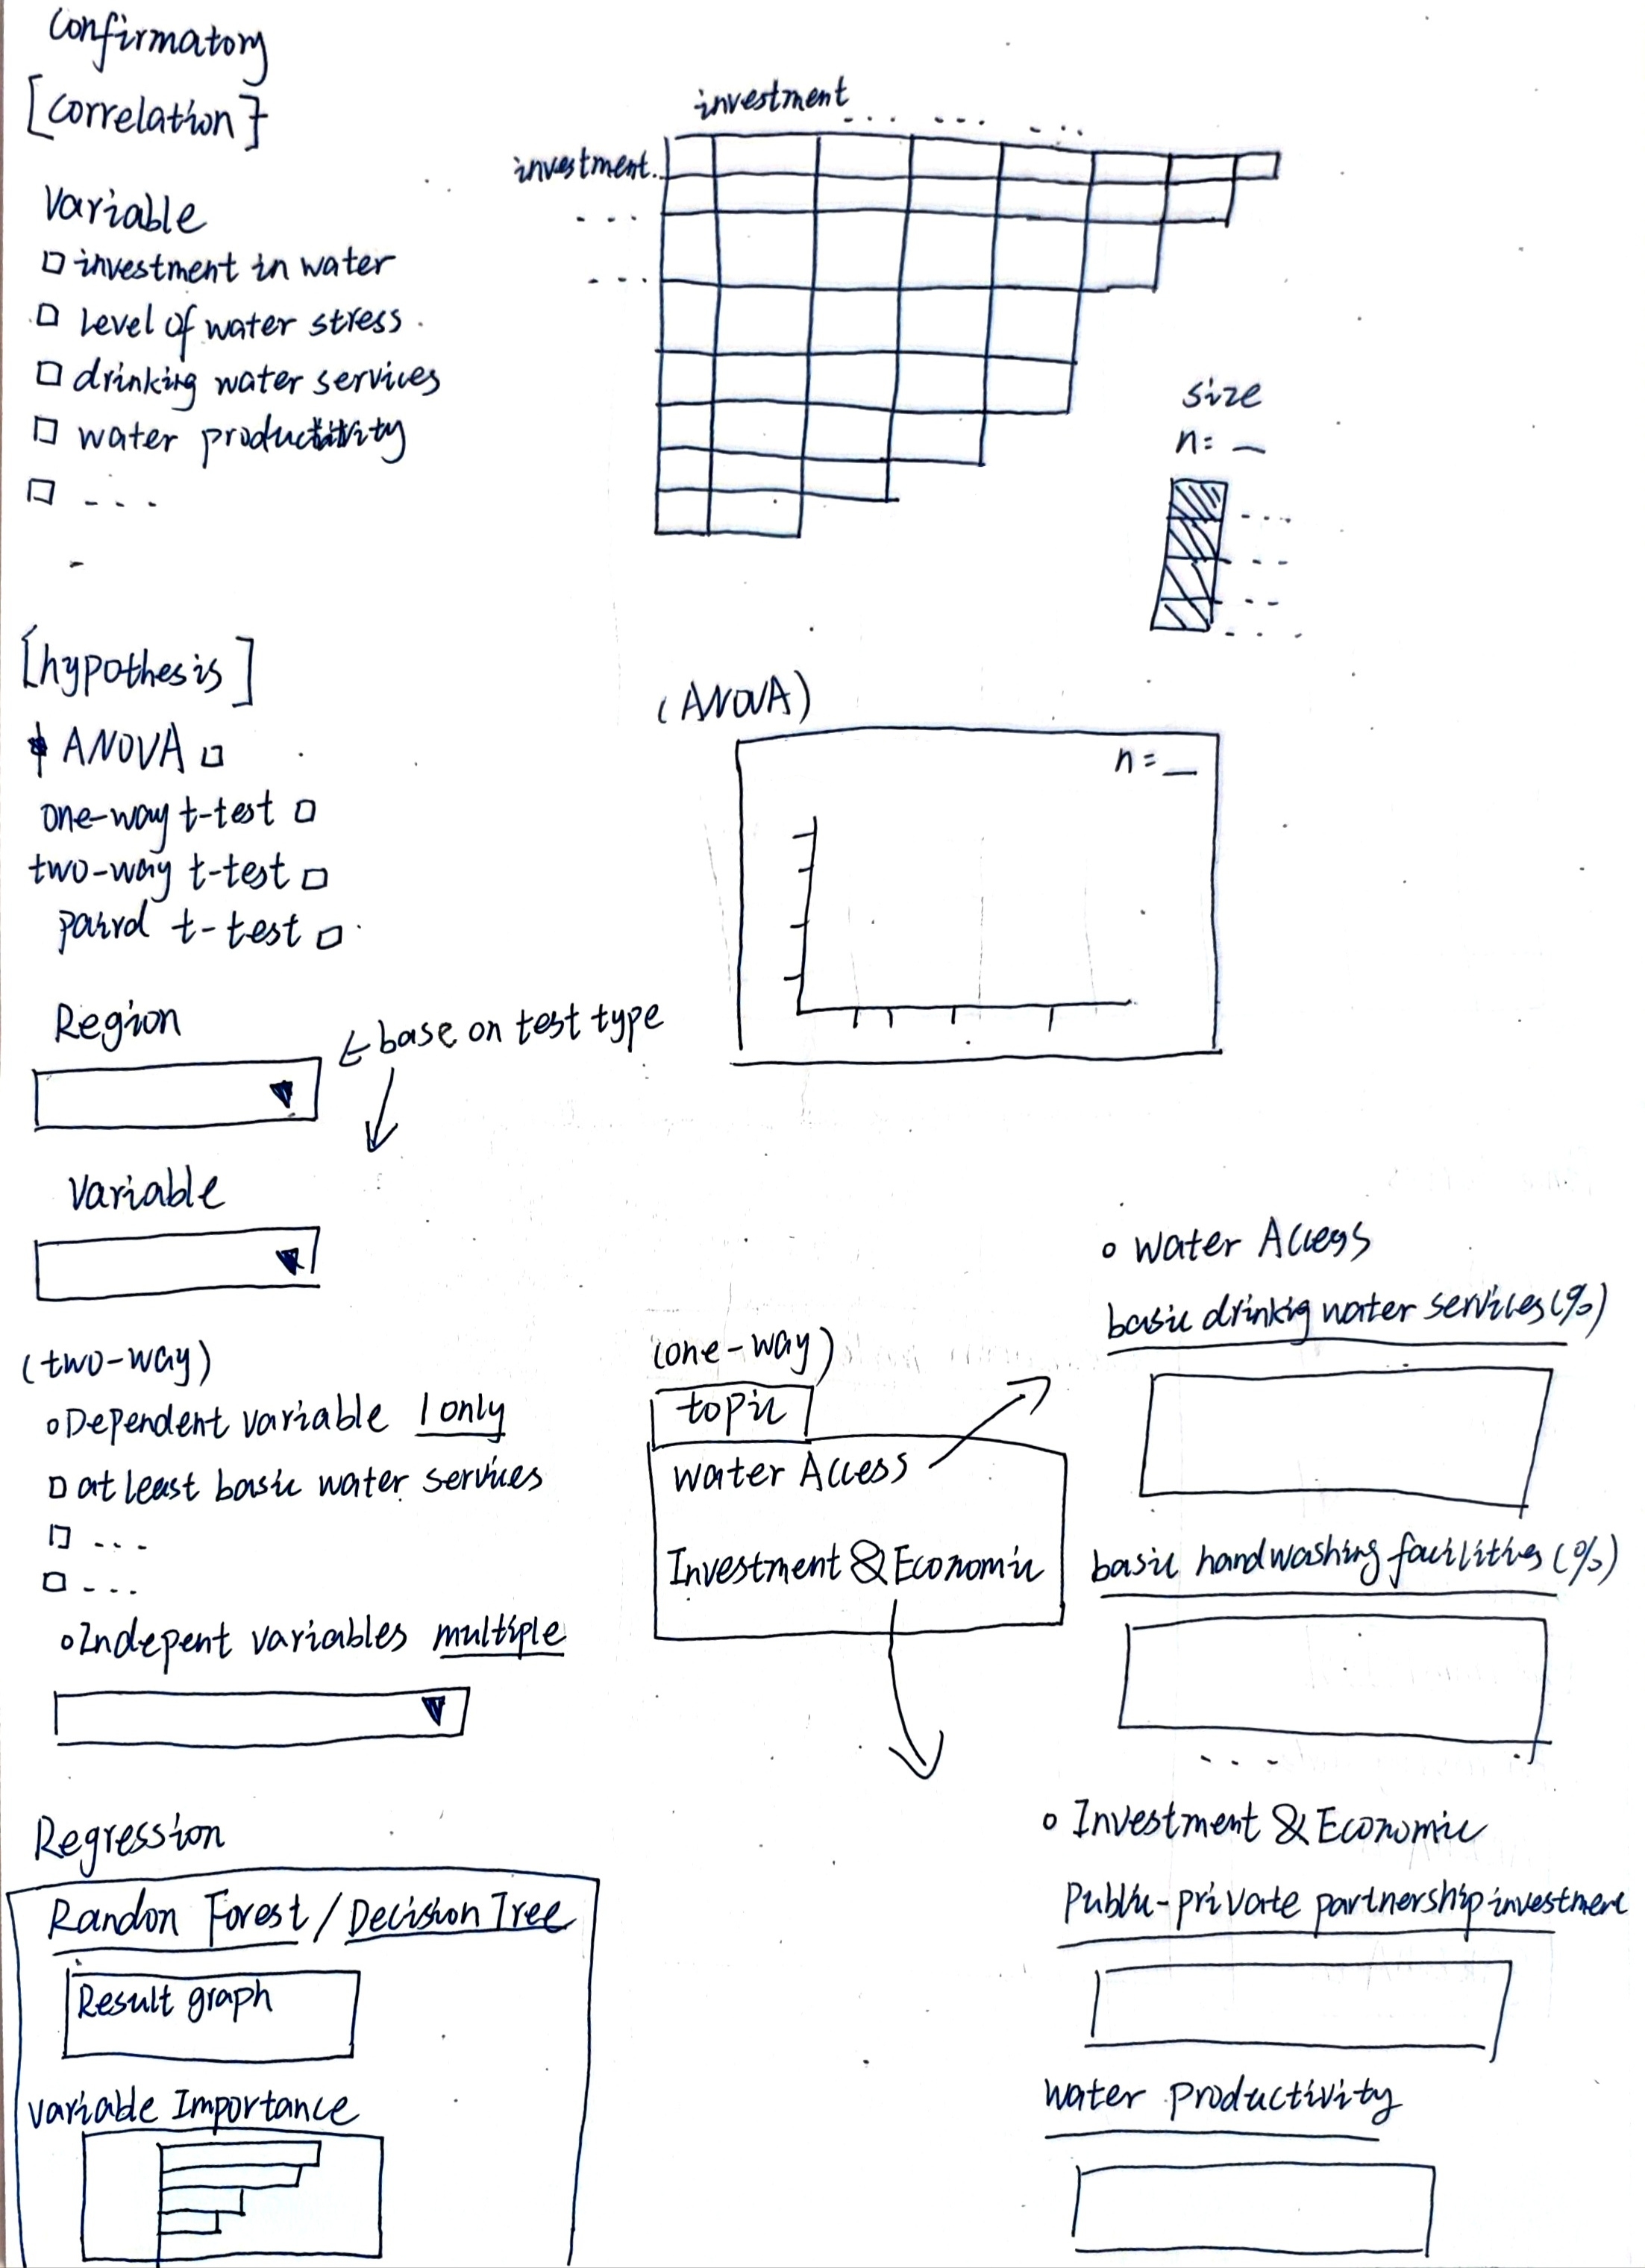 Confirmatory
[Correlation]
Variable
investment in water
Level of water stress.
drinking water services
water productivity
...
investment
... ... ...
investment.
...
...
size
n= _
...
...
...
...
[hypothesis]
ANOVA
one-way t-test
two-way t-test
paird t-test
Region
base on test type
Variable
(ANOVA)
n = _
(two-way)
Dependent variable 1 only
at least basic water services
...
...
Indepent variables multiple
(one-way)
topic
Water Access
Investment & Economic
Water Access
basic drinkig water services (%)
basic handwashing facilities (%)
...
Investment & Economic
Public-private partnership investment
Water productivity
Regression
Randon Forest / Decision Tree
Result graph
variable Importance